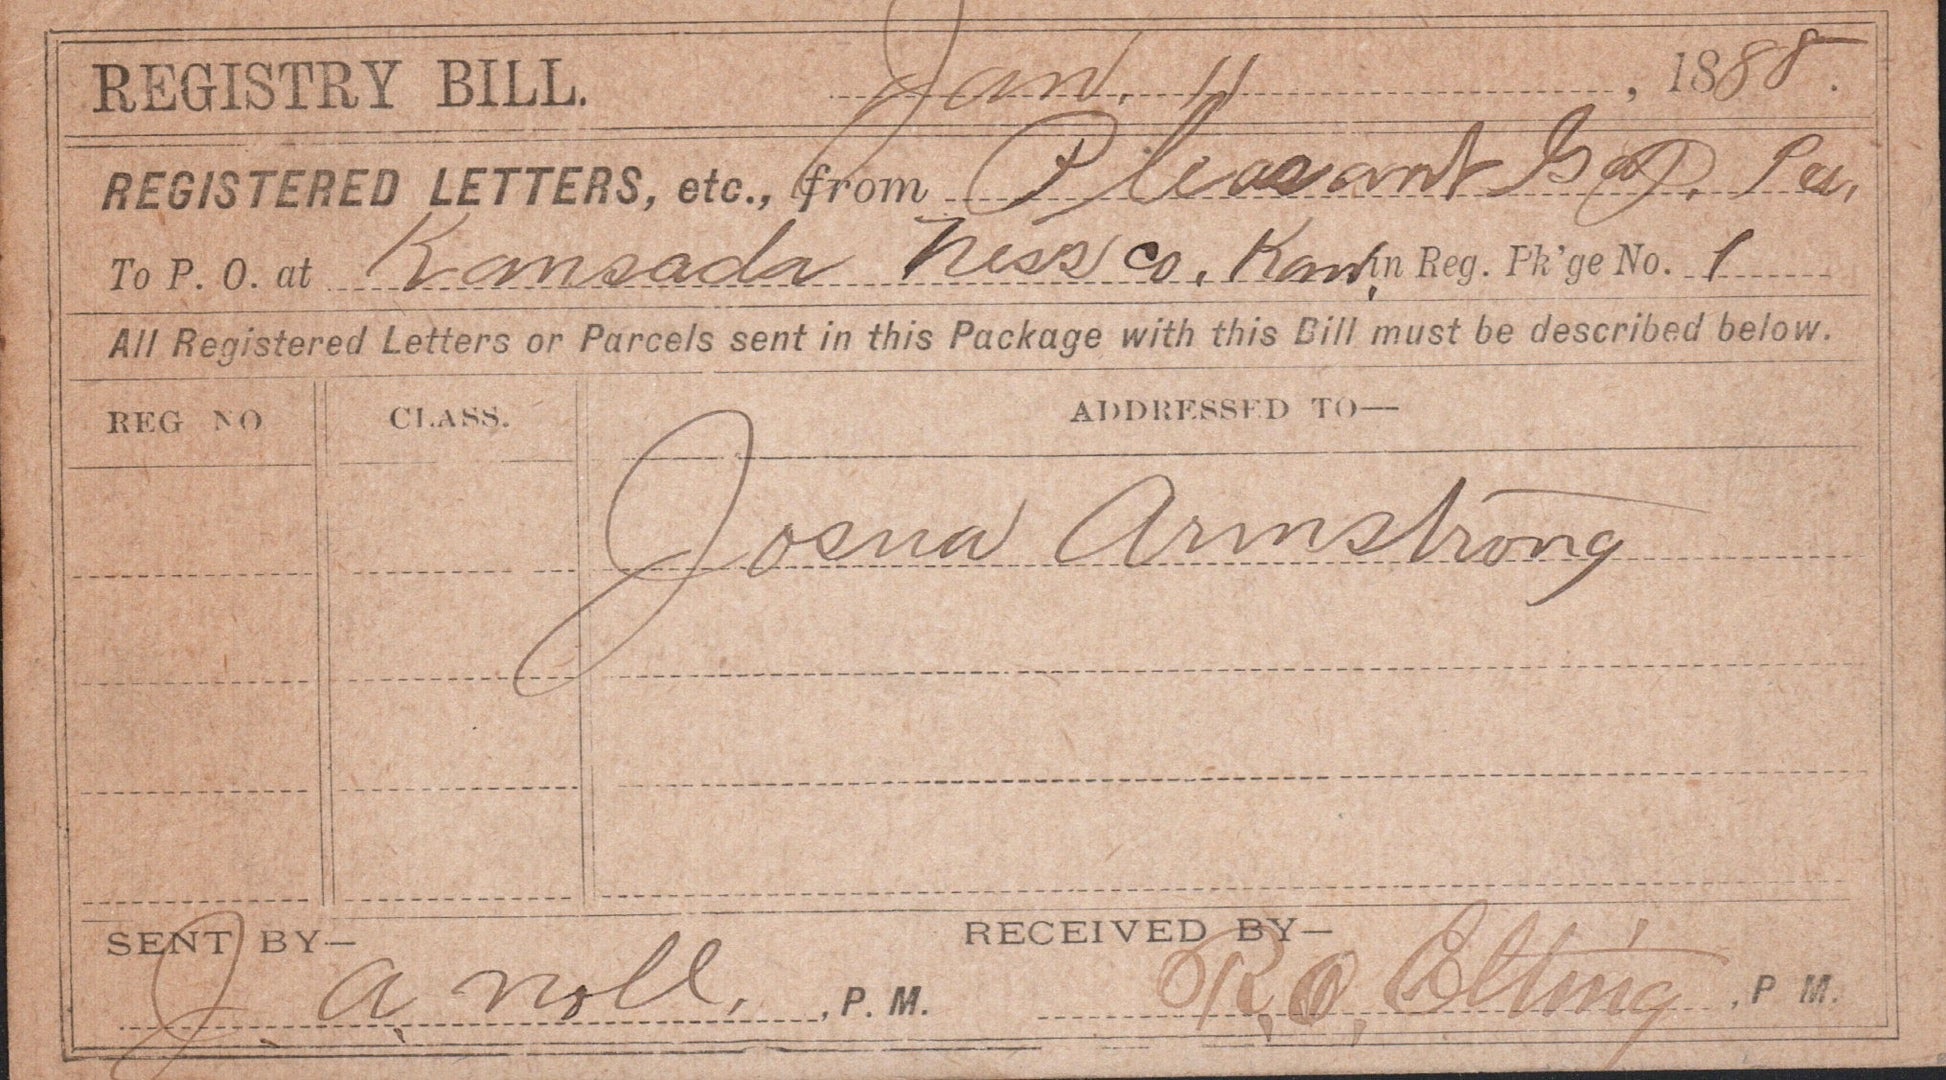 REGISTRY BILL. Jan. 11, 1888.
REGISTERED LETTERS, etc., from Pleasant Gap. Pa.
To P. O. at Kansada Ness Co. Kan. in Reg. Pk'ge No. 1
All Registered Letters or Parcels sent in this Package with this Bill must be described below.
REG NO CLASS. ADDRESSED TO—
Josua Armstrong
SENT BY— RECEIVED BY—
J. A. Noll., P. M. R. O. Elting, P M.